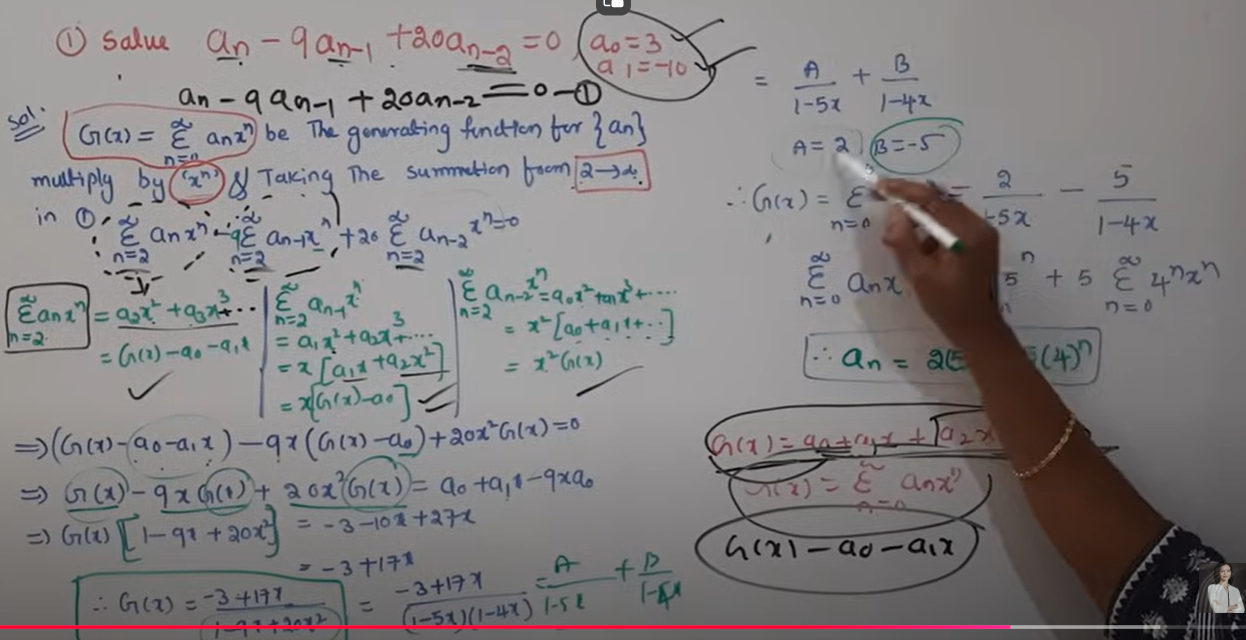 ① Salue an - 9an-1 + 20an-2 = 0, a0 = 3
a1 = -10
an - 9an-1 + 20an-2 = 0 — ①
Sol:
G(x) = Σ n=0 ∞ anxⁿ be The generating function for {an}
multiply by 'xⁿ' & Taking The summation from 2→∞
in ①
∞ Σ n=2 anxⁿ - 9 ∞ Σ n=2 an-1xⁿ + 20 ∞ Σ n=2 an-2xⁿ = 0
∞ Σ n=2 anxⁿ = a2x² + a3x³ + ...
= G(x) - a0 - a1x
∞ Σ n=2 an-1xⁿ
= a1x² + a2x³ + ...
= x[a1x + a2x²]
= x[G(x) - a0]
∞ Σ n=2 an-2xⁿ = a0x² + a1x³ + ....
= x²[a0 + a1x + ..]
= x²G(x)
⇒ (G(x) - a0 - a1x) - 9x(G(x) - a0) + 20x²G(x) = 0
⇒ G(x) - 9xG(x) + 20x²G(x) = a0 + a1x - 9xa0
⇒ G(x)[1 - 9x + 20x²] = -3 - 10x + 27x
= -3 + 17x
∴ G(x) = -3 + 17x / 1 - 9x + 20x² = -3 + 17x / (1-5x)(1-4x) = A / 1-5x + B / 1-4x
= A / 1-5x + B / 1-4x
A = 2, B = -5
∴ G(x) = Σ n=0 = 2 / -5x - 5 / 1-4x
∞ Σ n=0 anx 5ⁿ + 5 ∞ Σ n=0 4ⁿxⁿ
∴ an = 2(5 (4)ⁿ
G(x) = a0 + a1x + a2x
G(x) = ∞ Σ n=0 anxⁿ
G(x) - a0 - a1x